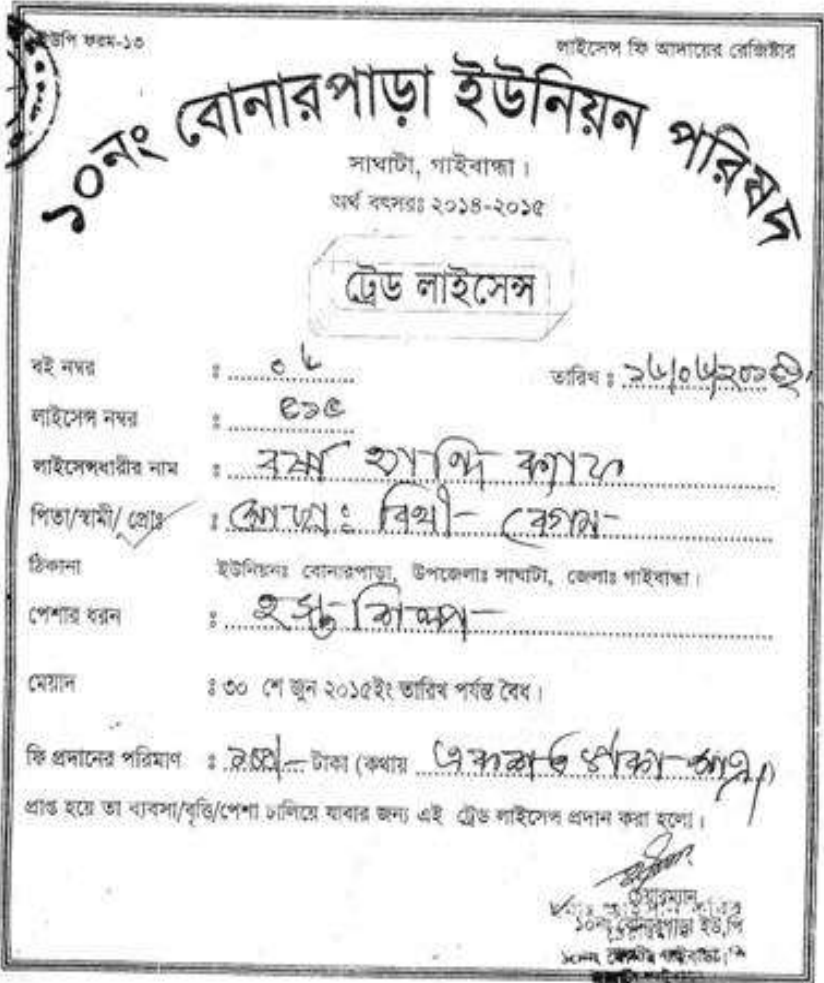 ইউপি ফরম-১৩
লাইসেন্স ফি আদায়ের রেজিষ্টার
১০নং বোনারপাড়া ইউনিয়ন পরিষদ
সাঘাটা, গাইবান্ধা।
অর্থ বৎসরঃ ২০১৪-২০১৫
ট্রেড লাইসেন্স
বই নম্বর ঃ ০৬ তারিখ ঃ
লাইসেন্স নম্বর ঃ ৫১৫
লাইসেন্সধারীর নাম ঃ বর্ষা হ্যান্ডি ক্যাফ
পিতা/স্বামী/ প্রোঃ ঃ মোছাঃ বিথী বেগম
ঠিকানা ইউনিয়নঃ বোনারপাড়া, উপজেলাঃ সাঘাটা, জেলাঃ গাইবান্ধা।
পেশার ধরন ঃ হস্ত শিল্প
মেয়াদ ঃ ৩০ শে জুন ২০১৫ইং তারিখ পর্যন্ত বৈধ।
ফি প্রদানের পরিমাণ ঃ ১০০/- টাকা (কথায় একশত টাকা মাত্র)
প্রাপ্ত হয়ে তা ব্যবসা/বৃত্তি/পেশা চালিয়ে যাবার জন্য এই ট্রেড লাইসেন্স প্রদান করা হলো।
চেয়ারম্যান
১০নং বোনারপাড়া ইউ,পি